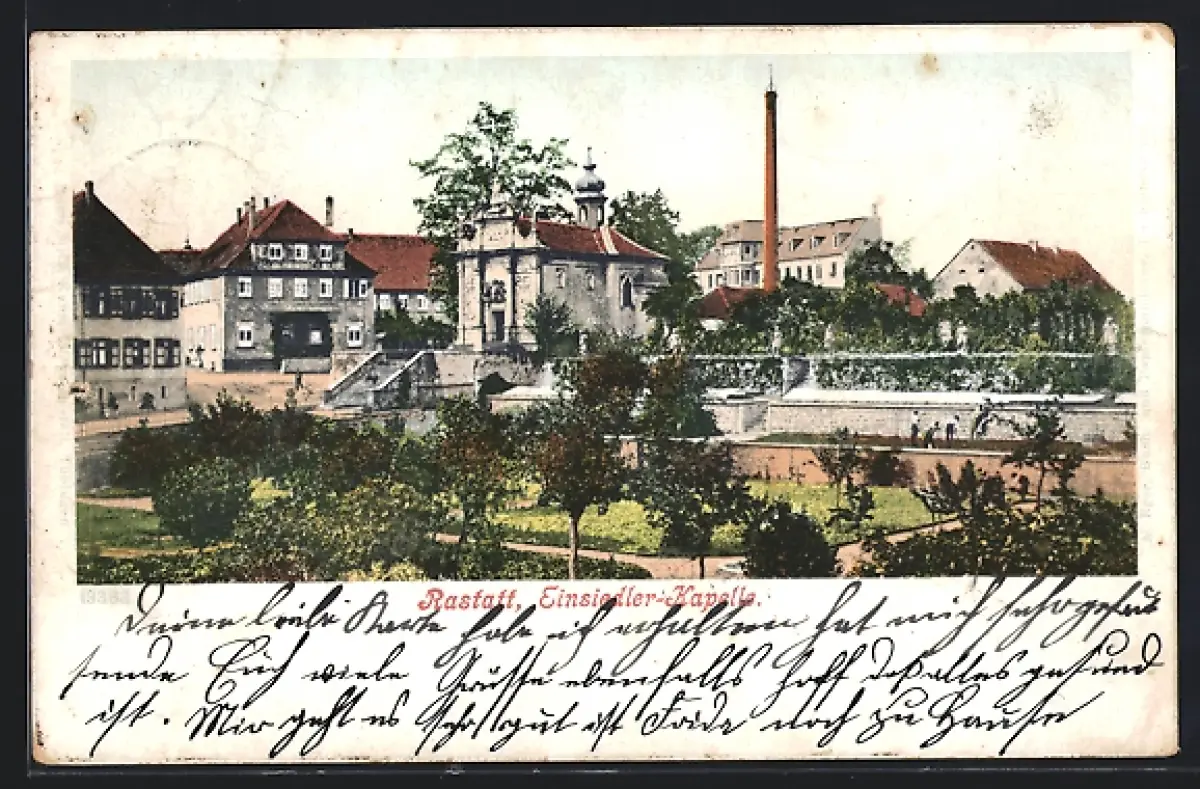 Rastatt, Einsiedler-Kapelle.
Deine liebe Karte habe ich erhalten hat mich sehr gefreut
sende Euch viele Grüsse ebenfalls hoff daß alles gesund
ist. Mir geht es sehr gut ist noch zu Hause